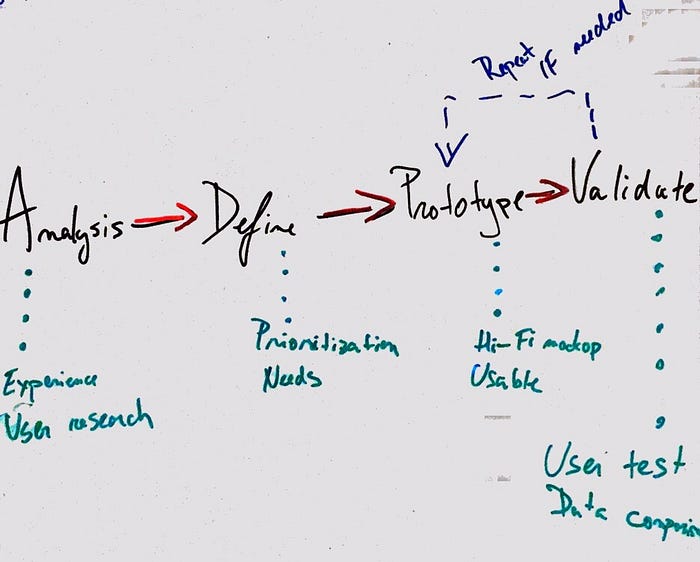 Repeat IF needed
Analysis Define Prototype Validate
Prioritization
Needs
Hi-Fi mockup
Usable
Experience
User research
User test
Data